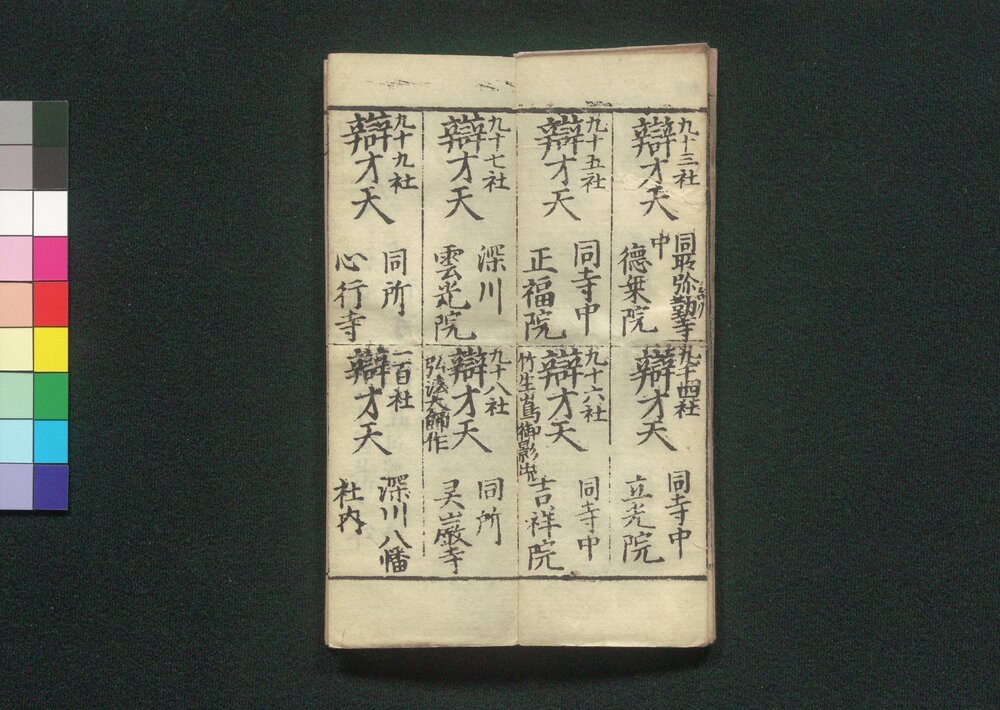 九十三社
辯才天
同所弥勒寺
中
德乗院
九十四社
辯才天
同寺中
立光院
九十五社
辯才天
同寺中
正福院
九十六社
辯才天
竹生嶌御影也
同寺中
吉祥院
九十七社
辯才天
深川
雲光院
九十八社
辯才天
弘法大師作
同所
灵巌寺
九十九社
辯才天
同所
心行寺
一百社
辯才天
深川八幡
社内